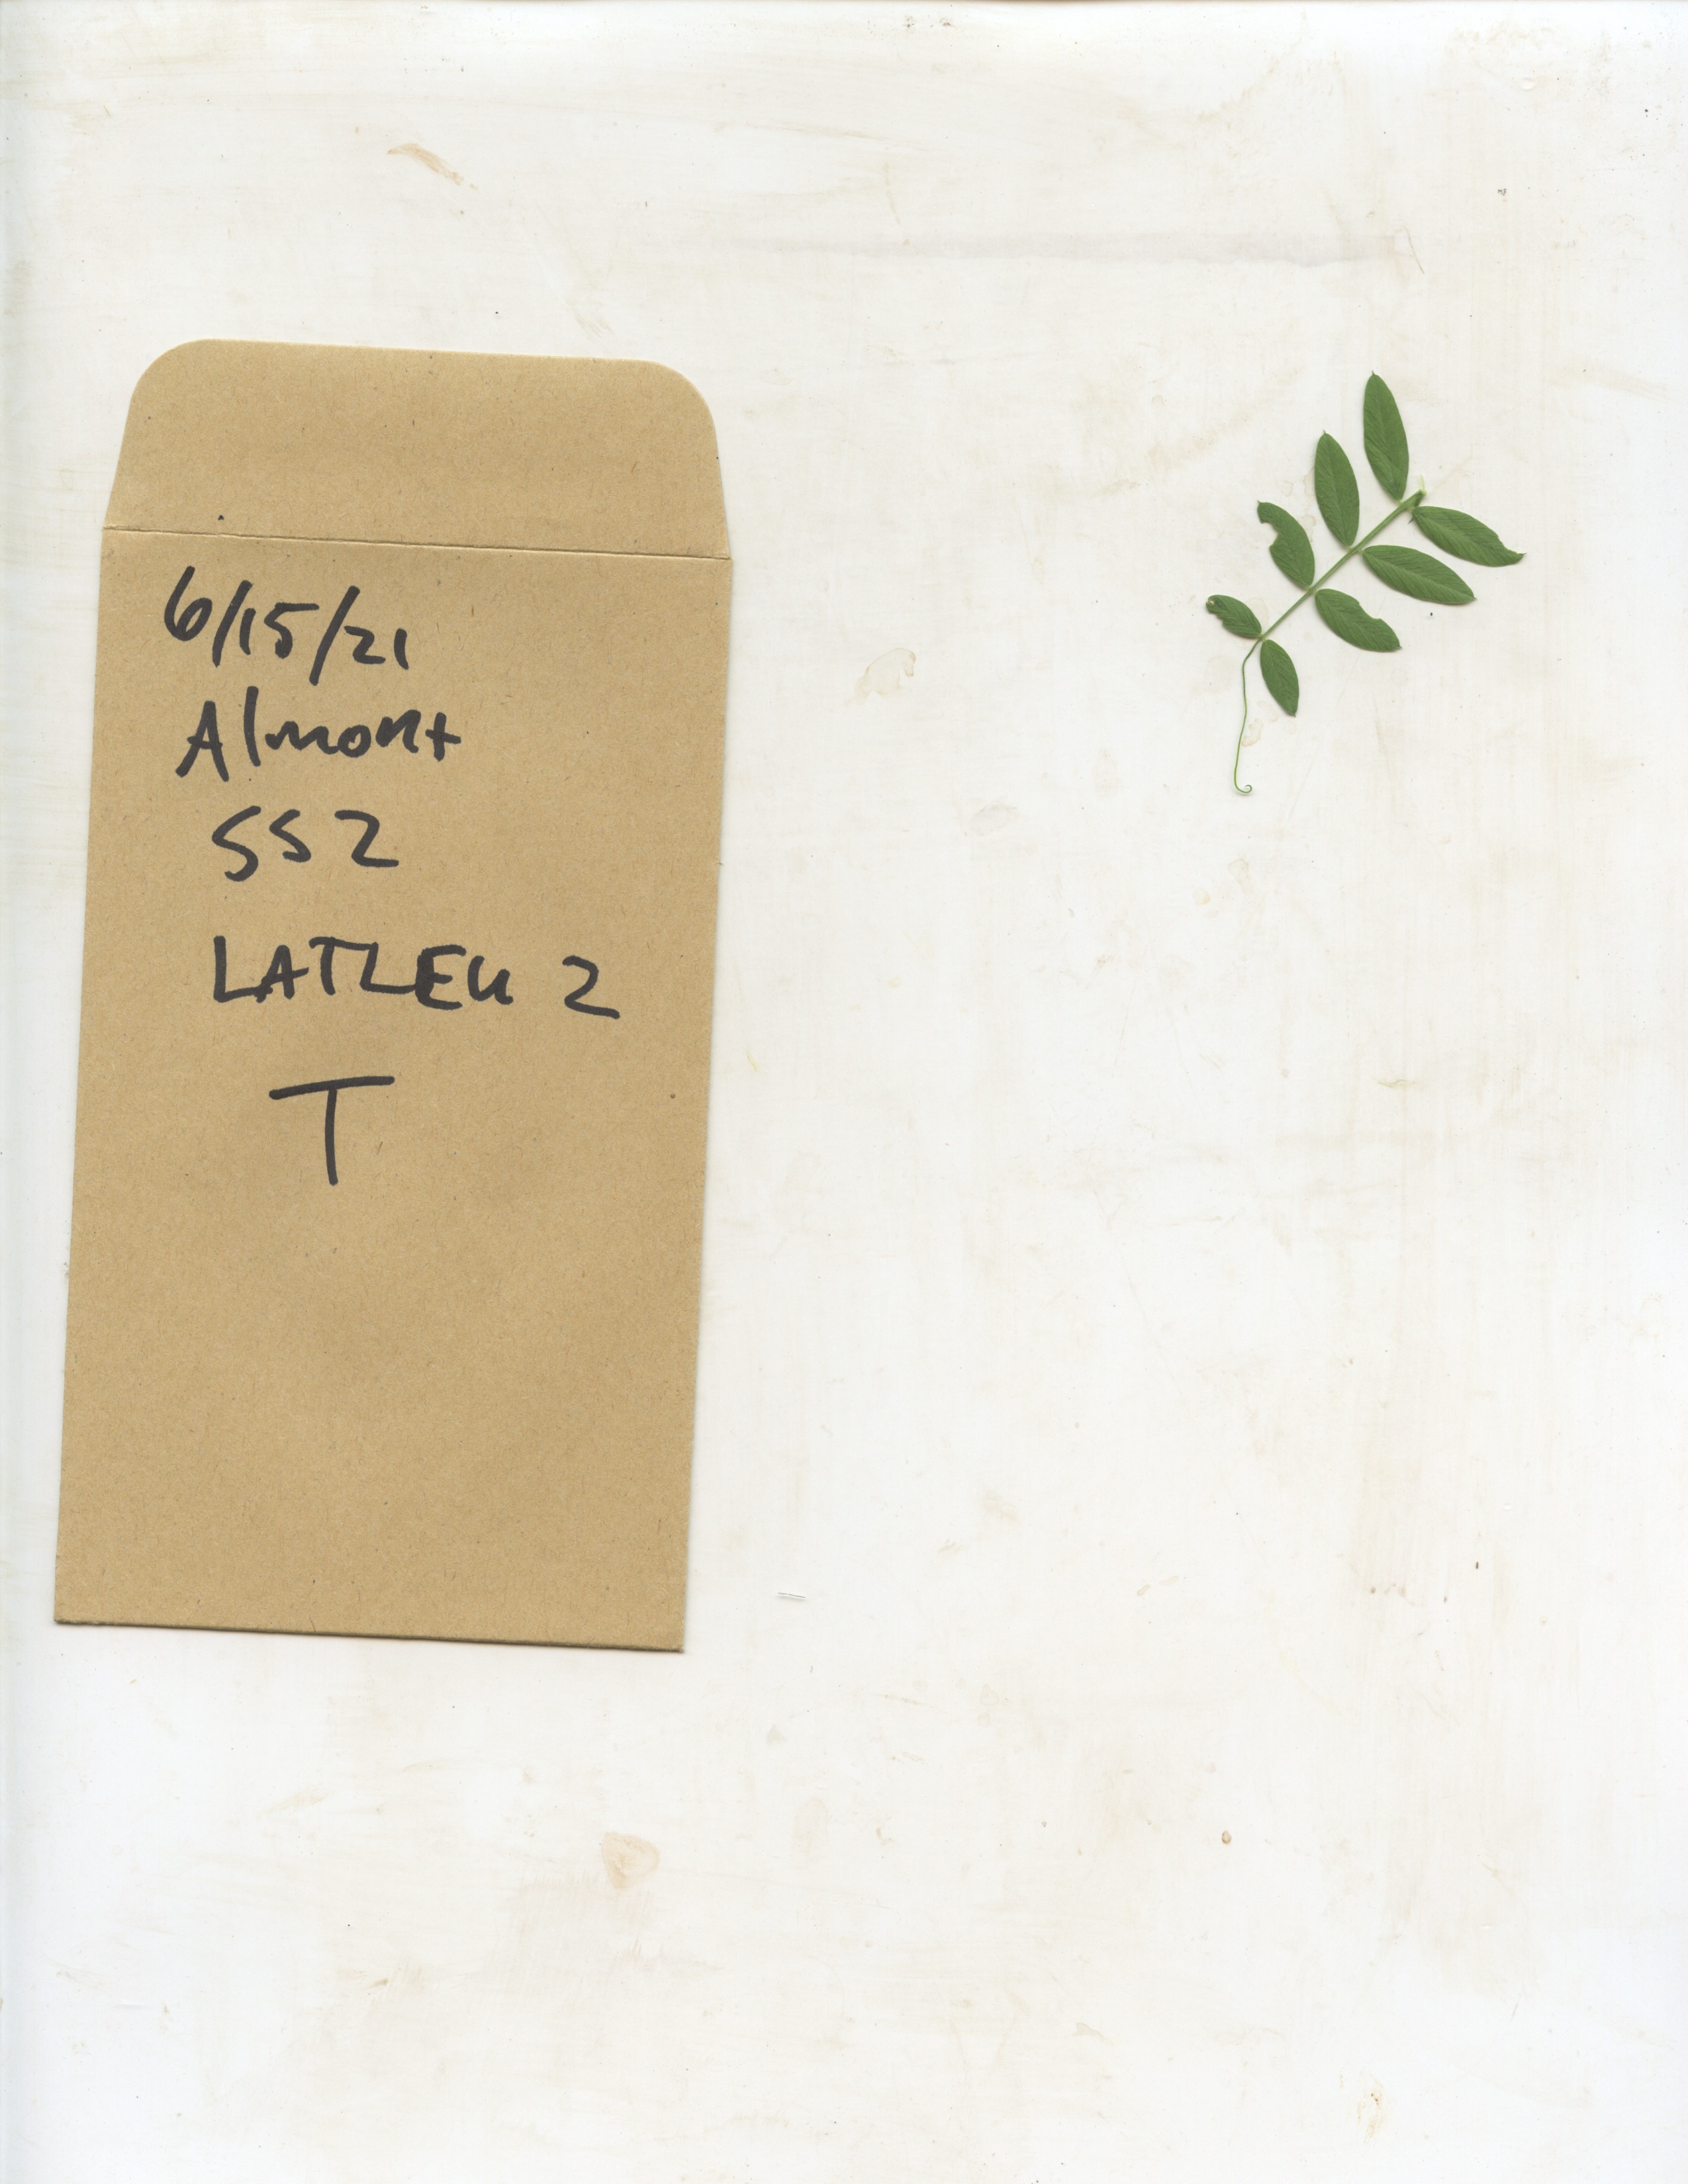 6/15/21
Almont
SS2
LATLEU 2
T